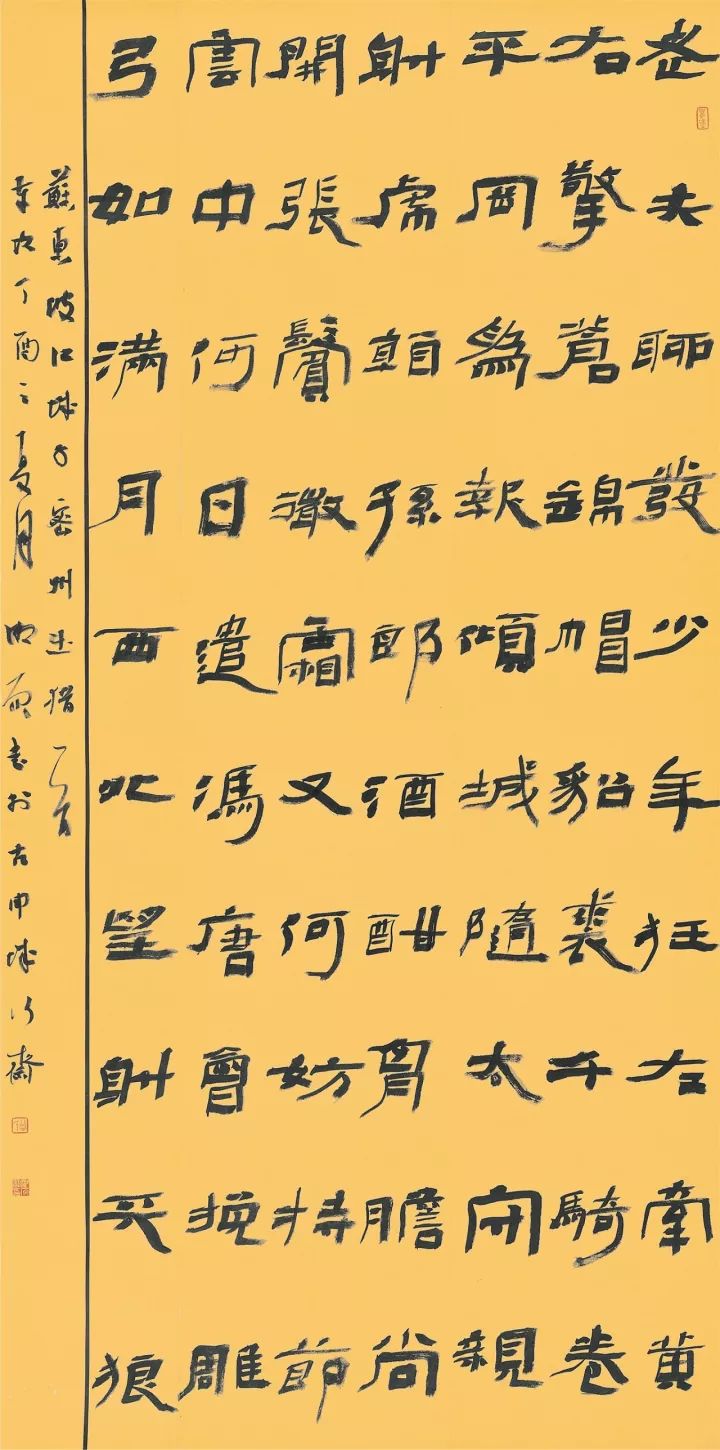 老夫聊發少年狂左牽黄
右擎蒼錦帽貂裘千騎卷
平岡爲報傾城隨太守親
射虎看孫郎酒酣胸膽尚
開張鬢微霜又何妨持節
雲中何日遣馮唐會挽雕
弓如滿月西北望射天狼
蘇東坡江城子密州出獵一首
丁酉之夏月書於古申城行齋